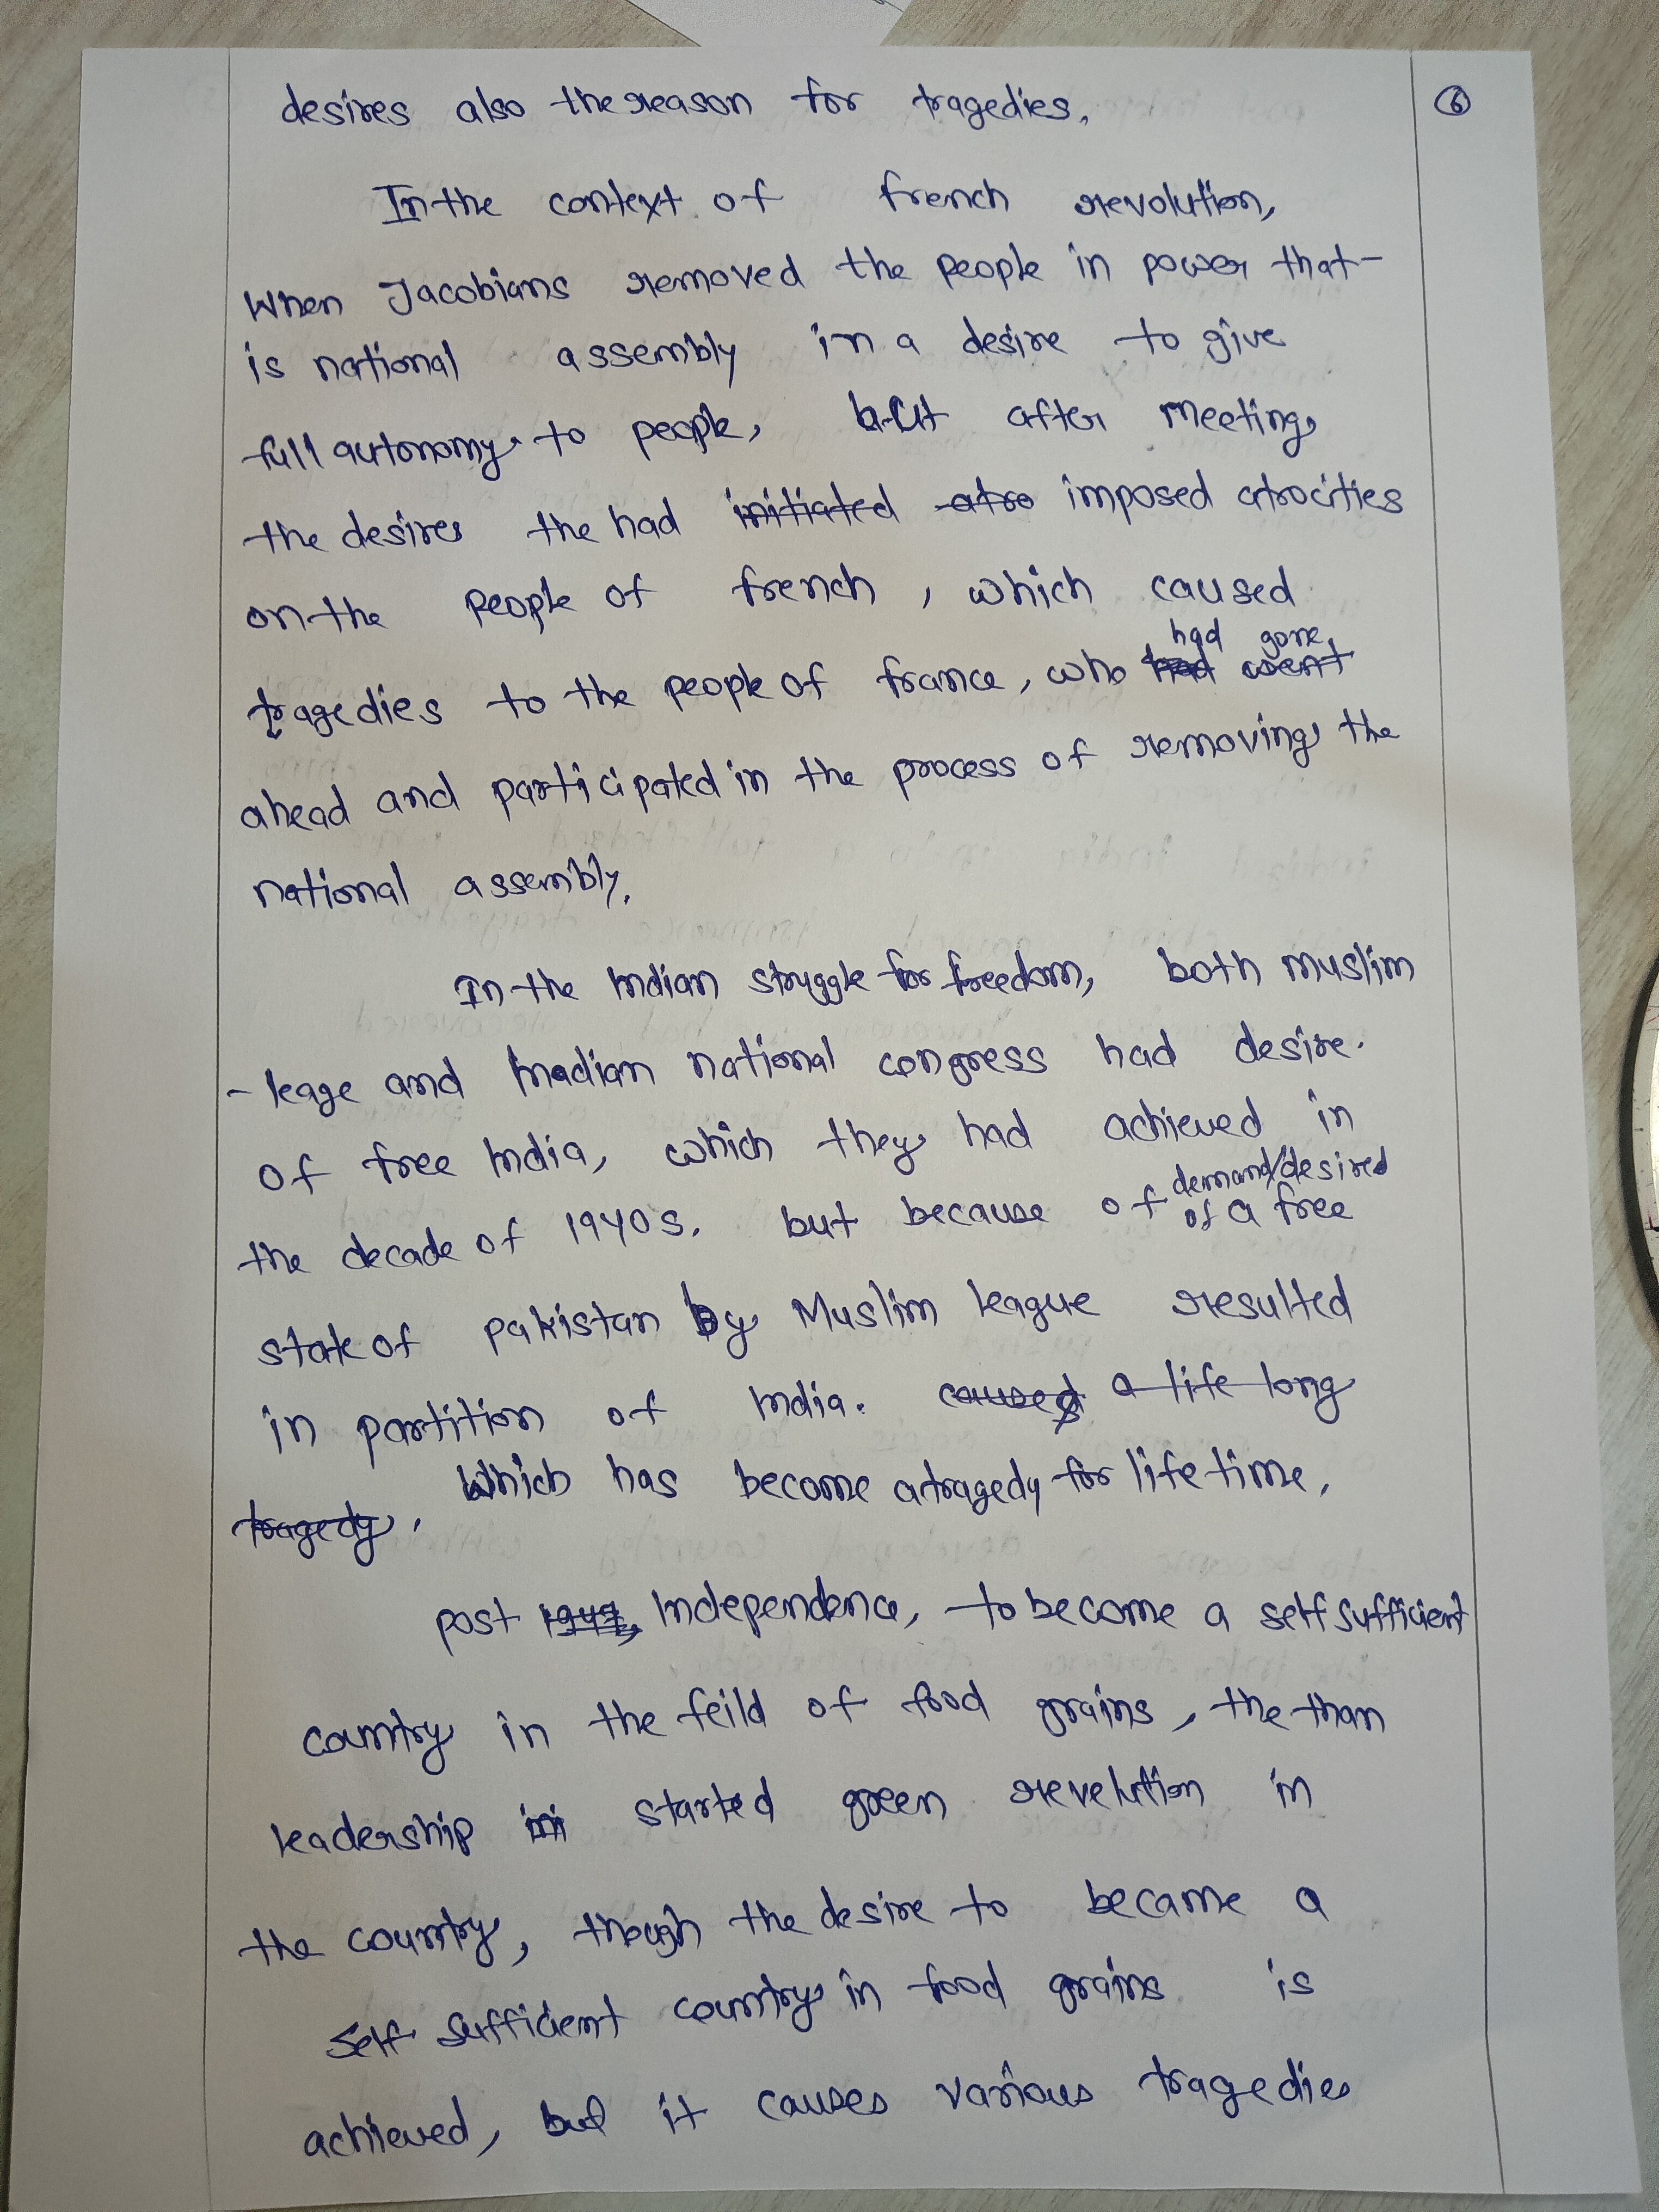 desires also the reason for tragedies.
6
In the context of french revolution,
When Jacobians removed the people in power that-
is national assembly in a desire to give
full autonomy to people, but after meeting
the desires the had initiated atro imposed atrocities
on the people of french, which caused
had gone
tragedies to the people of france, who had went
ahead and participated in the process of removing the
national assembly.
In the Indian struggle for freedom, both muslim
- leage and Indian national congress had desire.
of free India, which they had achieved in
demand/desired
the decade of 1940s. but because of of a free
state of pakistan by Muslim league resulted
in partition of India. caused a life long
tragedy. Which has become a tragedy for life time.
post 1947, Independence, to become a self sufficient
country in the feild of food grains, the than
leadership in started green revelution in
the country, though the desire to became a
self sufficient country in food grains is
achieved, but it causes various tragedies